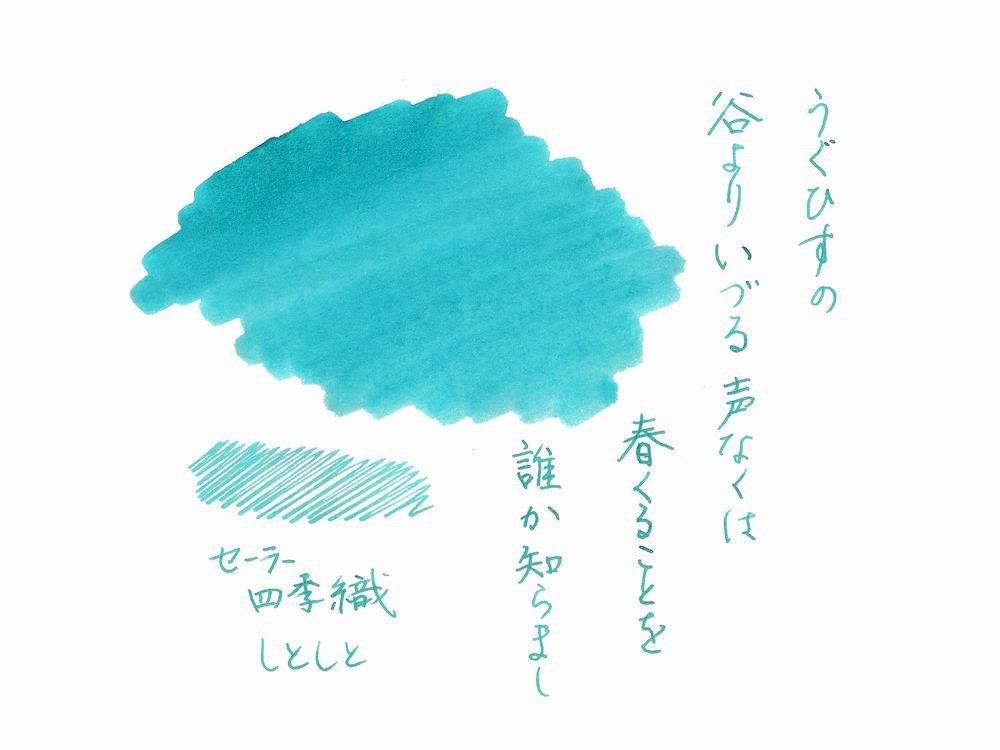 うぐひすの
谷よりいづる声なくは
春くることを
誰か知らまし
セーラー
四季織
しとしと